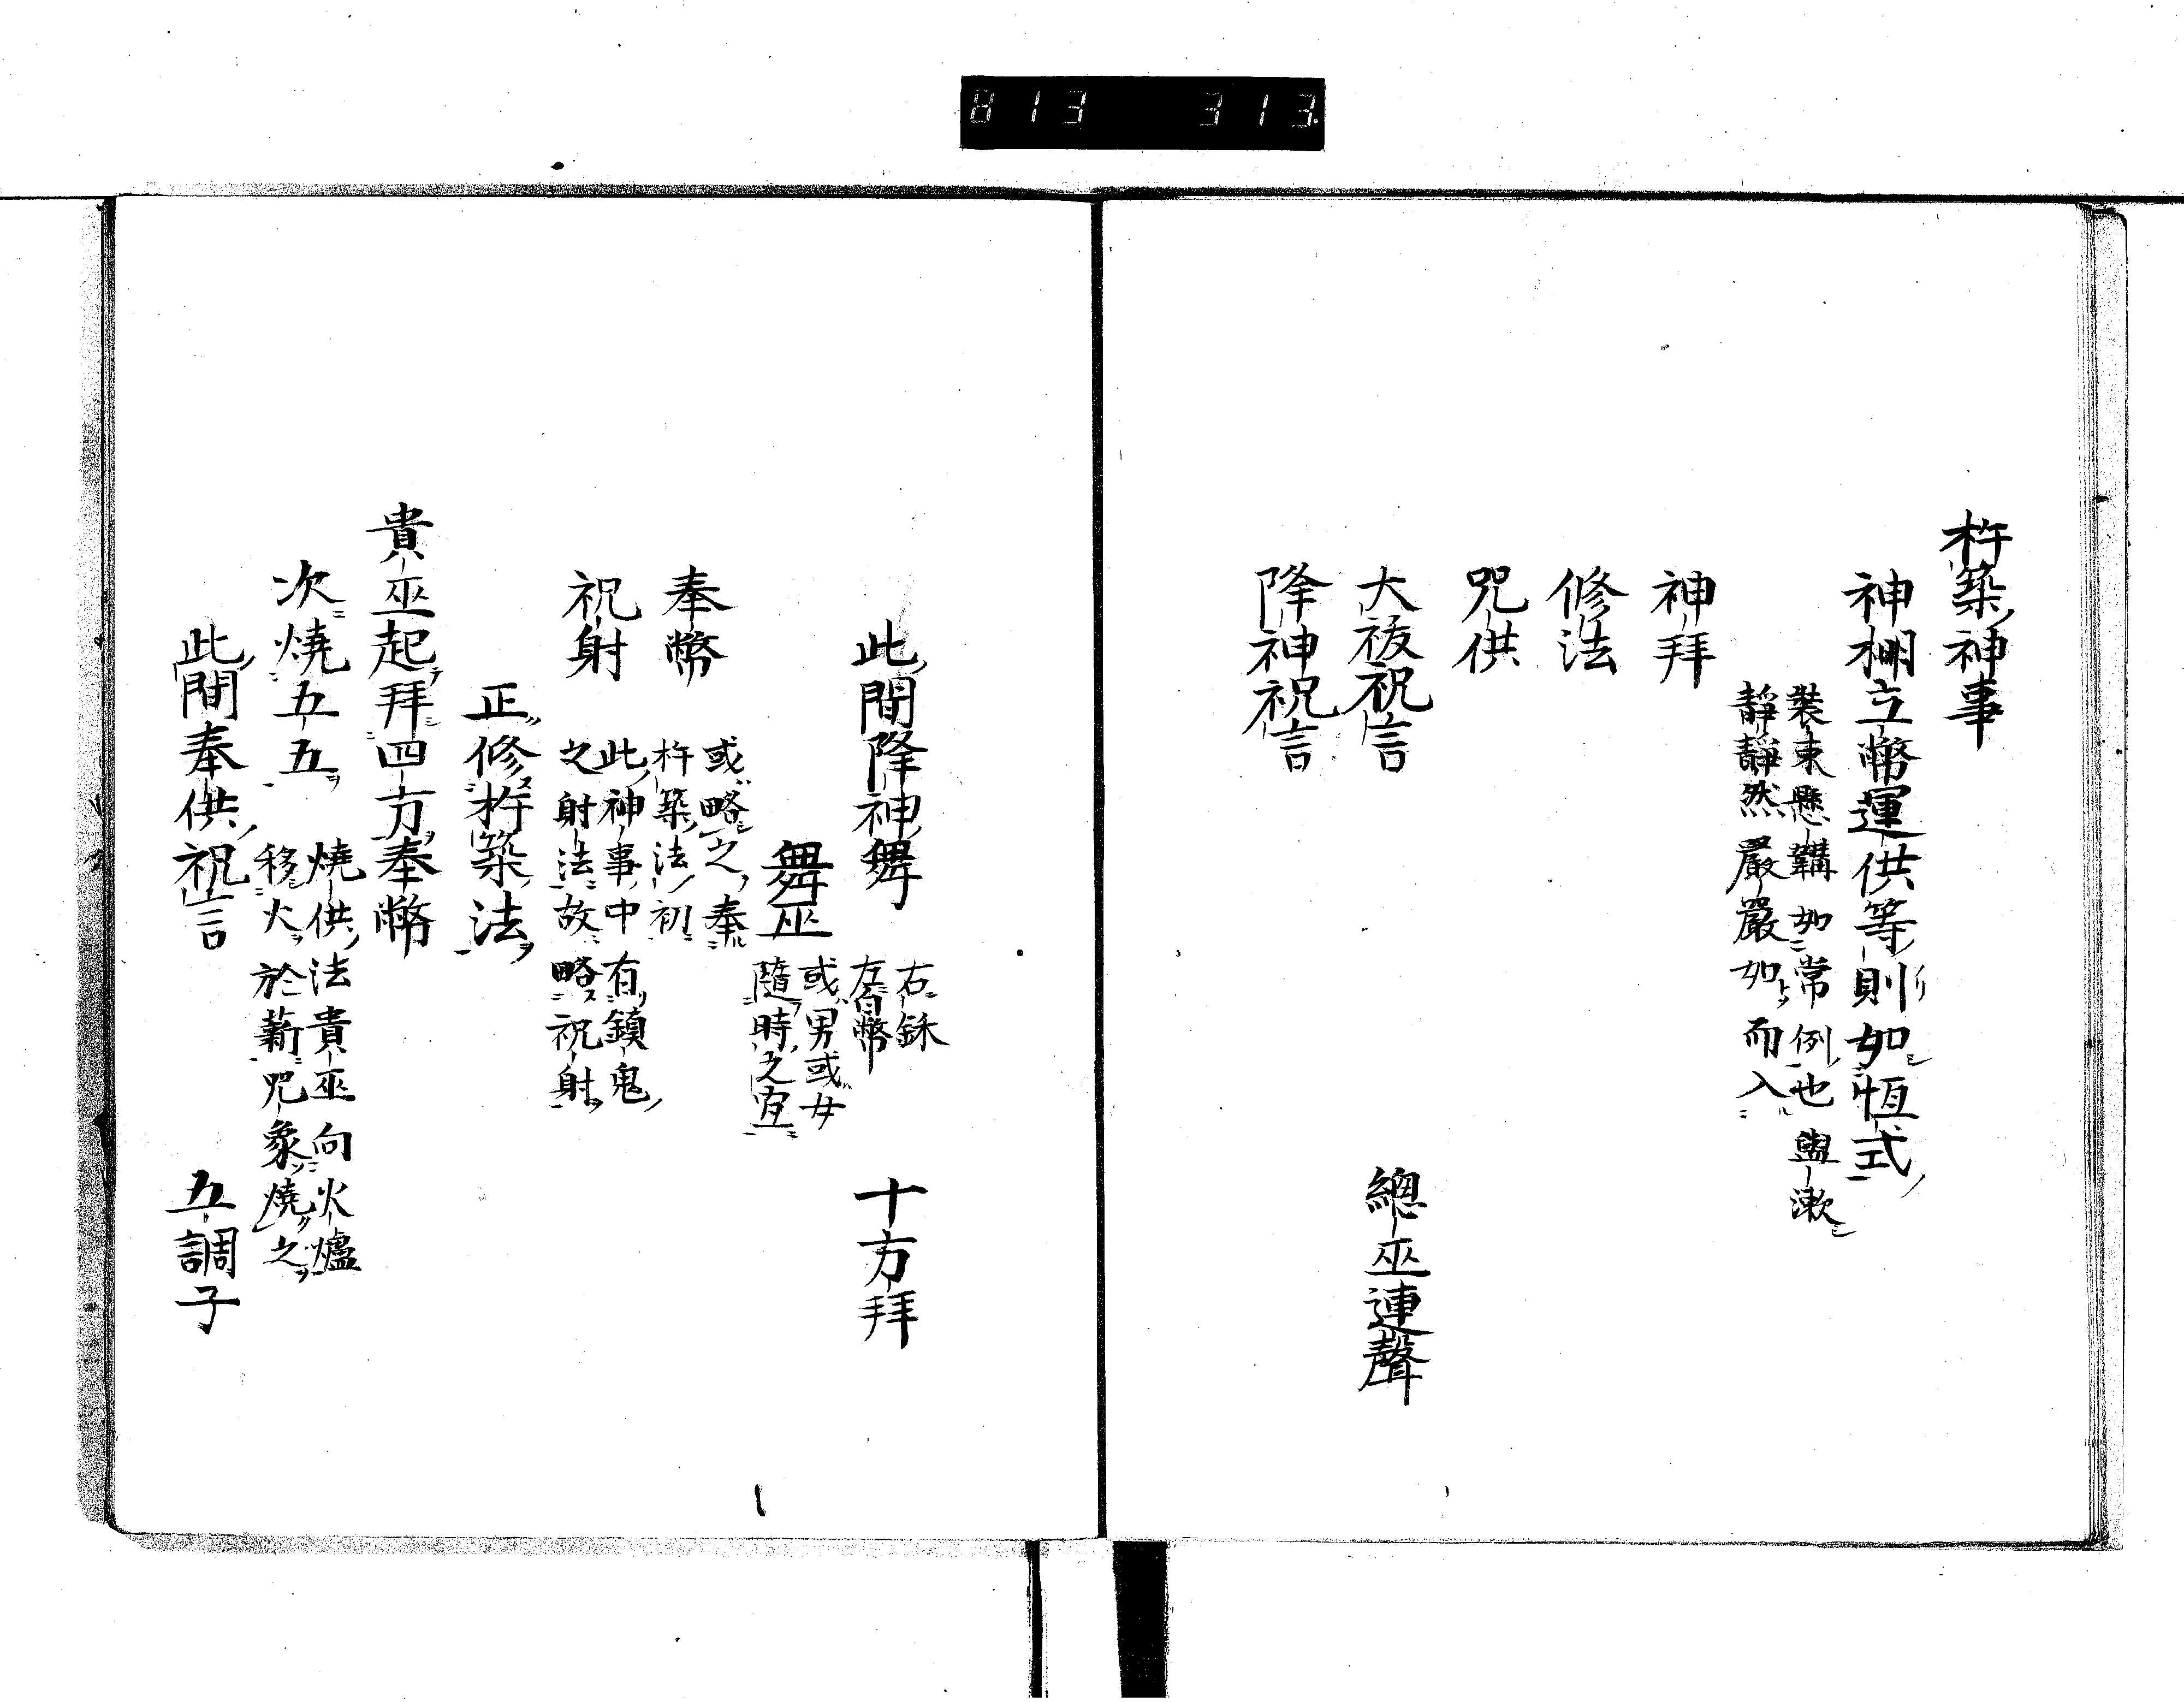 813 313.
杵築神事
神棚立幣運供等則如恒式
裝束懸韝如常例也盥漱
靜靜然嚴嚴如而入
神拜
修法
咒供
大祓祝言 總巫連聲
降神祝言
此間降神舞 右鉌 左白幣 十方拜
舞巫 或男或女 隨時之宜
奉幣 或略之奉 杵築法初
祝射 此神事中有鎮鬼 之射法故略祝射
正修杵築法
貴巫起拜四方奉幣
次燒五五 燒供法貴巫向火爐 移火於薪咒象燒之
此間奉供祝言 五調子